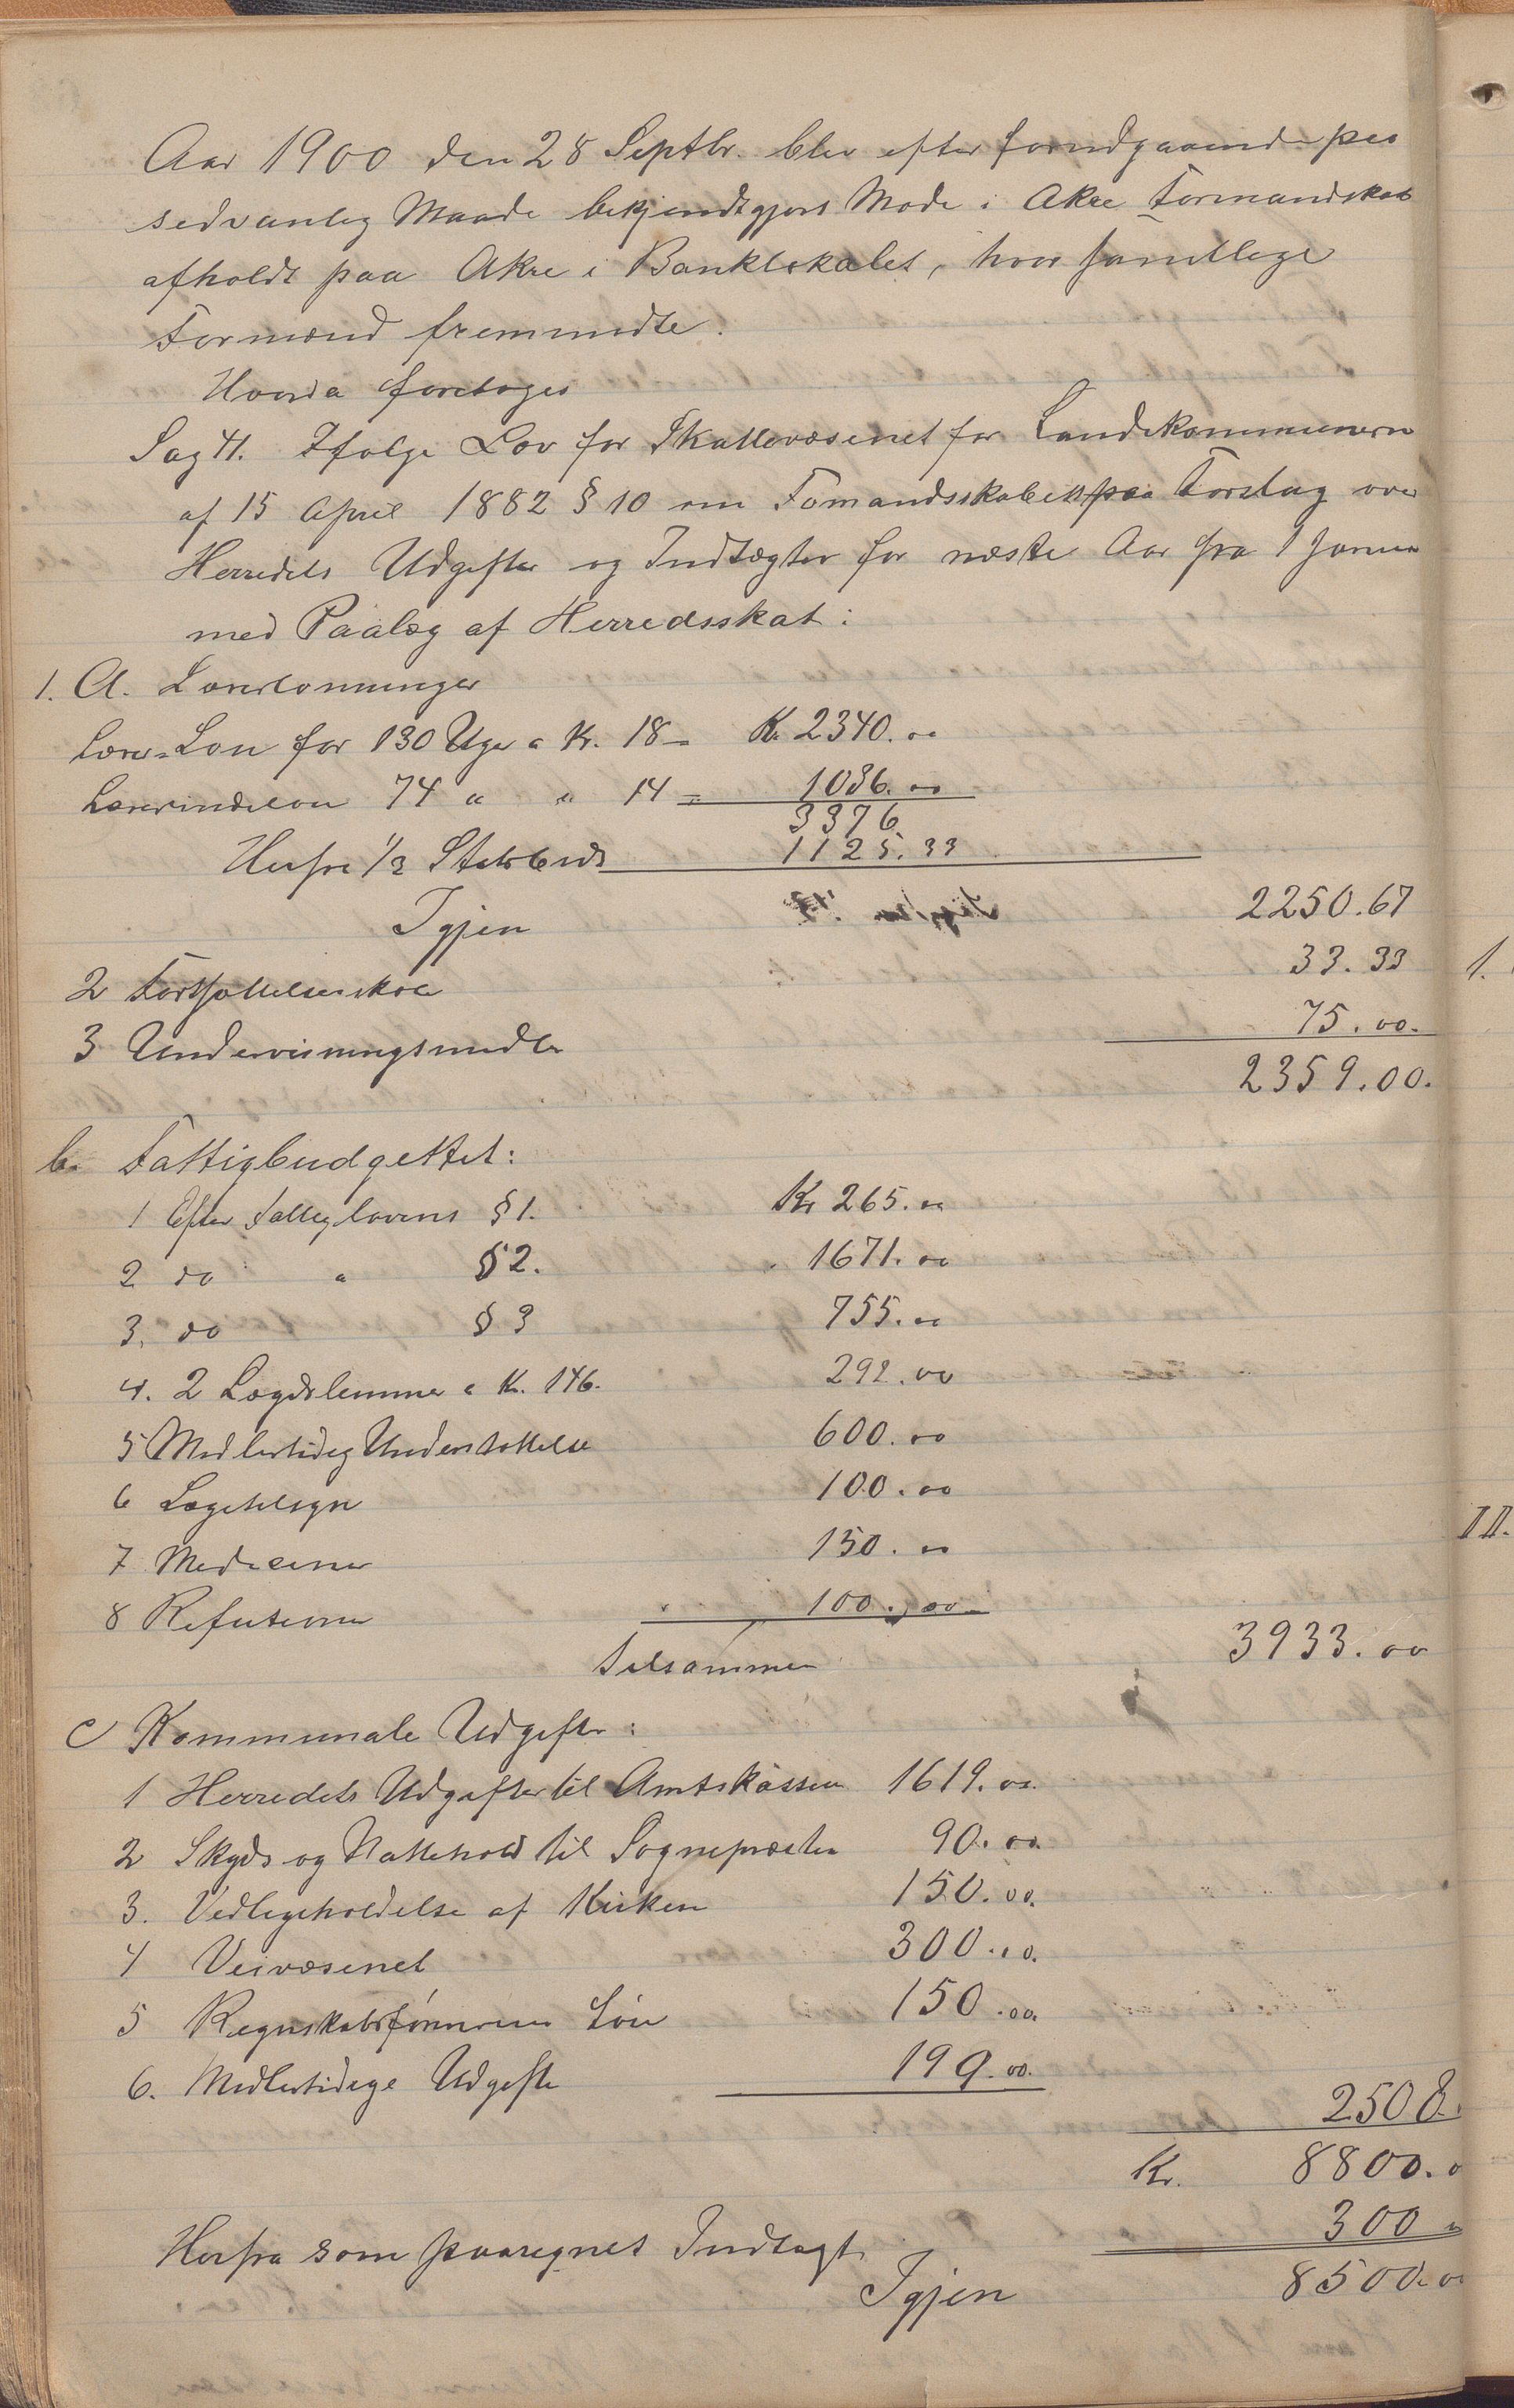 Aar 1900 den 28 Septbr. blev efter forudgaaende paa
sedvanlig Maade bekjendtgjort Møde i Akre Formandskab
afholdt paa Akre i Banklokalet, hvor samtlige
Formænd fremmødte.
Hvorda foretoges
Sag 41. Ifølge Lov for Skattevæsenet for Landskommunern
af 15 April 1882 § 10 om Fomandsskabets Forslag over
Herredets Udgifter og Indtægter for næste Aar fra 1 Januar
med Paalæg af Herredsskat:
1. A. Lærerlønninger
Lærer-Løn for 130 Uger a Kr. 18 = Kr 2340.00
Lærerindeløn 74 " " 14 = 1036.00
3376
Herfra 1/3 Statsbidr 1125.33
Igjen 2250.67
2 Fortsættelsesskole 33.33
3 Undervisningsmidler 75.00.
2359.00.
b. Fattigbudgettet:
1 Efter Fattiglovens § 1. Kr 265.00
2 do " § 2. 1671.00
3. do § 3 755.00
4. 2 Lægdslemmer a Kr. 146. 292.00
5 Midlertidig Understøttelse 600.00
6 Lægetilsyn 100.00
7 Mediciner 150.00
8 Refusioner 100.00
Tilsammen 3933.00
C Kommunale Udgifter:
1 Herredets Udgifter til Amtskassen 1619.00.
2 Skyds og Nattehold til Sognepræsten 90.00.
3. Vedligeholdelse af Kirken 150.00.
4 Veivæsenet 300.00.
5 Regnskabsførerens Løn 150.00.
6. Midlertidige Udgifter 199.00.
2508.
Kr. 8800.0
Herfra som paaregnet Indtægt 300
Igjen 8500.0
1.
II.